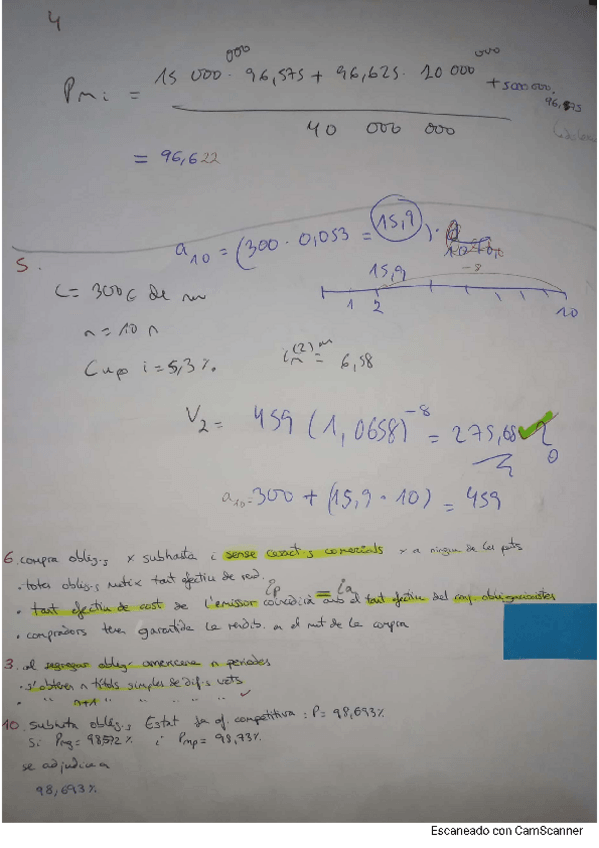 4
Pmi = 15 000 000 · 96,575 + 96,625 · 20 000 000 + 5000000 · 96,875
40 000 000
= 96,622
5.
a10 = (300 · 0,053 = 15,9) ·
C = 300€ de
15,9 -8
1 2 10
n = 10
Cupo i = 5,3%.
im(2)m = 6,58
V2 = 459 (1,0658)-8 = 275,68
a10 = 300 + (15,9 · 10) = 459
6. compra oblig.s x subhasta i sense caract.s comercials x a ninguna de les parts
· totes oblig.s mateix tant efectiu de rend.
ip = ia
· tant efectiu de cost de l'emissor coincidirà amb el tant efectiu del obligacionistes
· compradors tenen garantida la rendib. en el mot de la compra
3. al segregar oblig. americana n períodes
· s'obtenen n títols simples de dif.s vets
· " n+1 " " " " "
10. Subhasta oblig.s Estat fa of. competitiva: P = 98,693%
Si Pmg = 98,572% i Pmp = 98,73%.
se adjudica a
98,693%
Escaneado con CamScanner